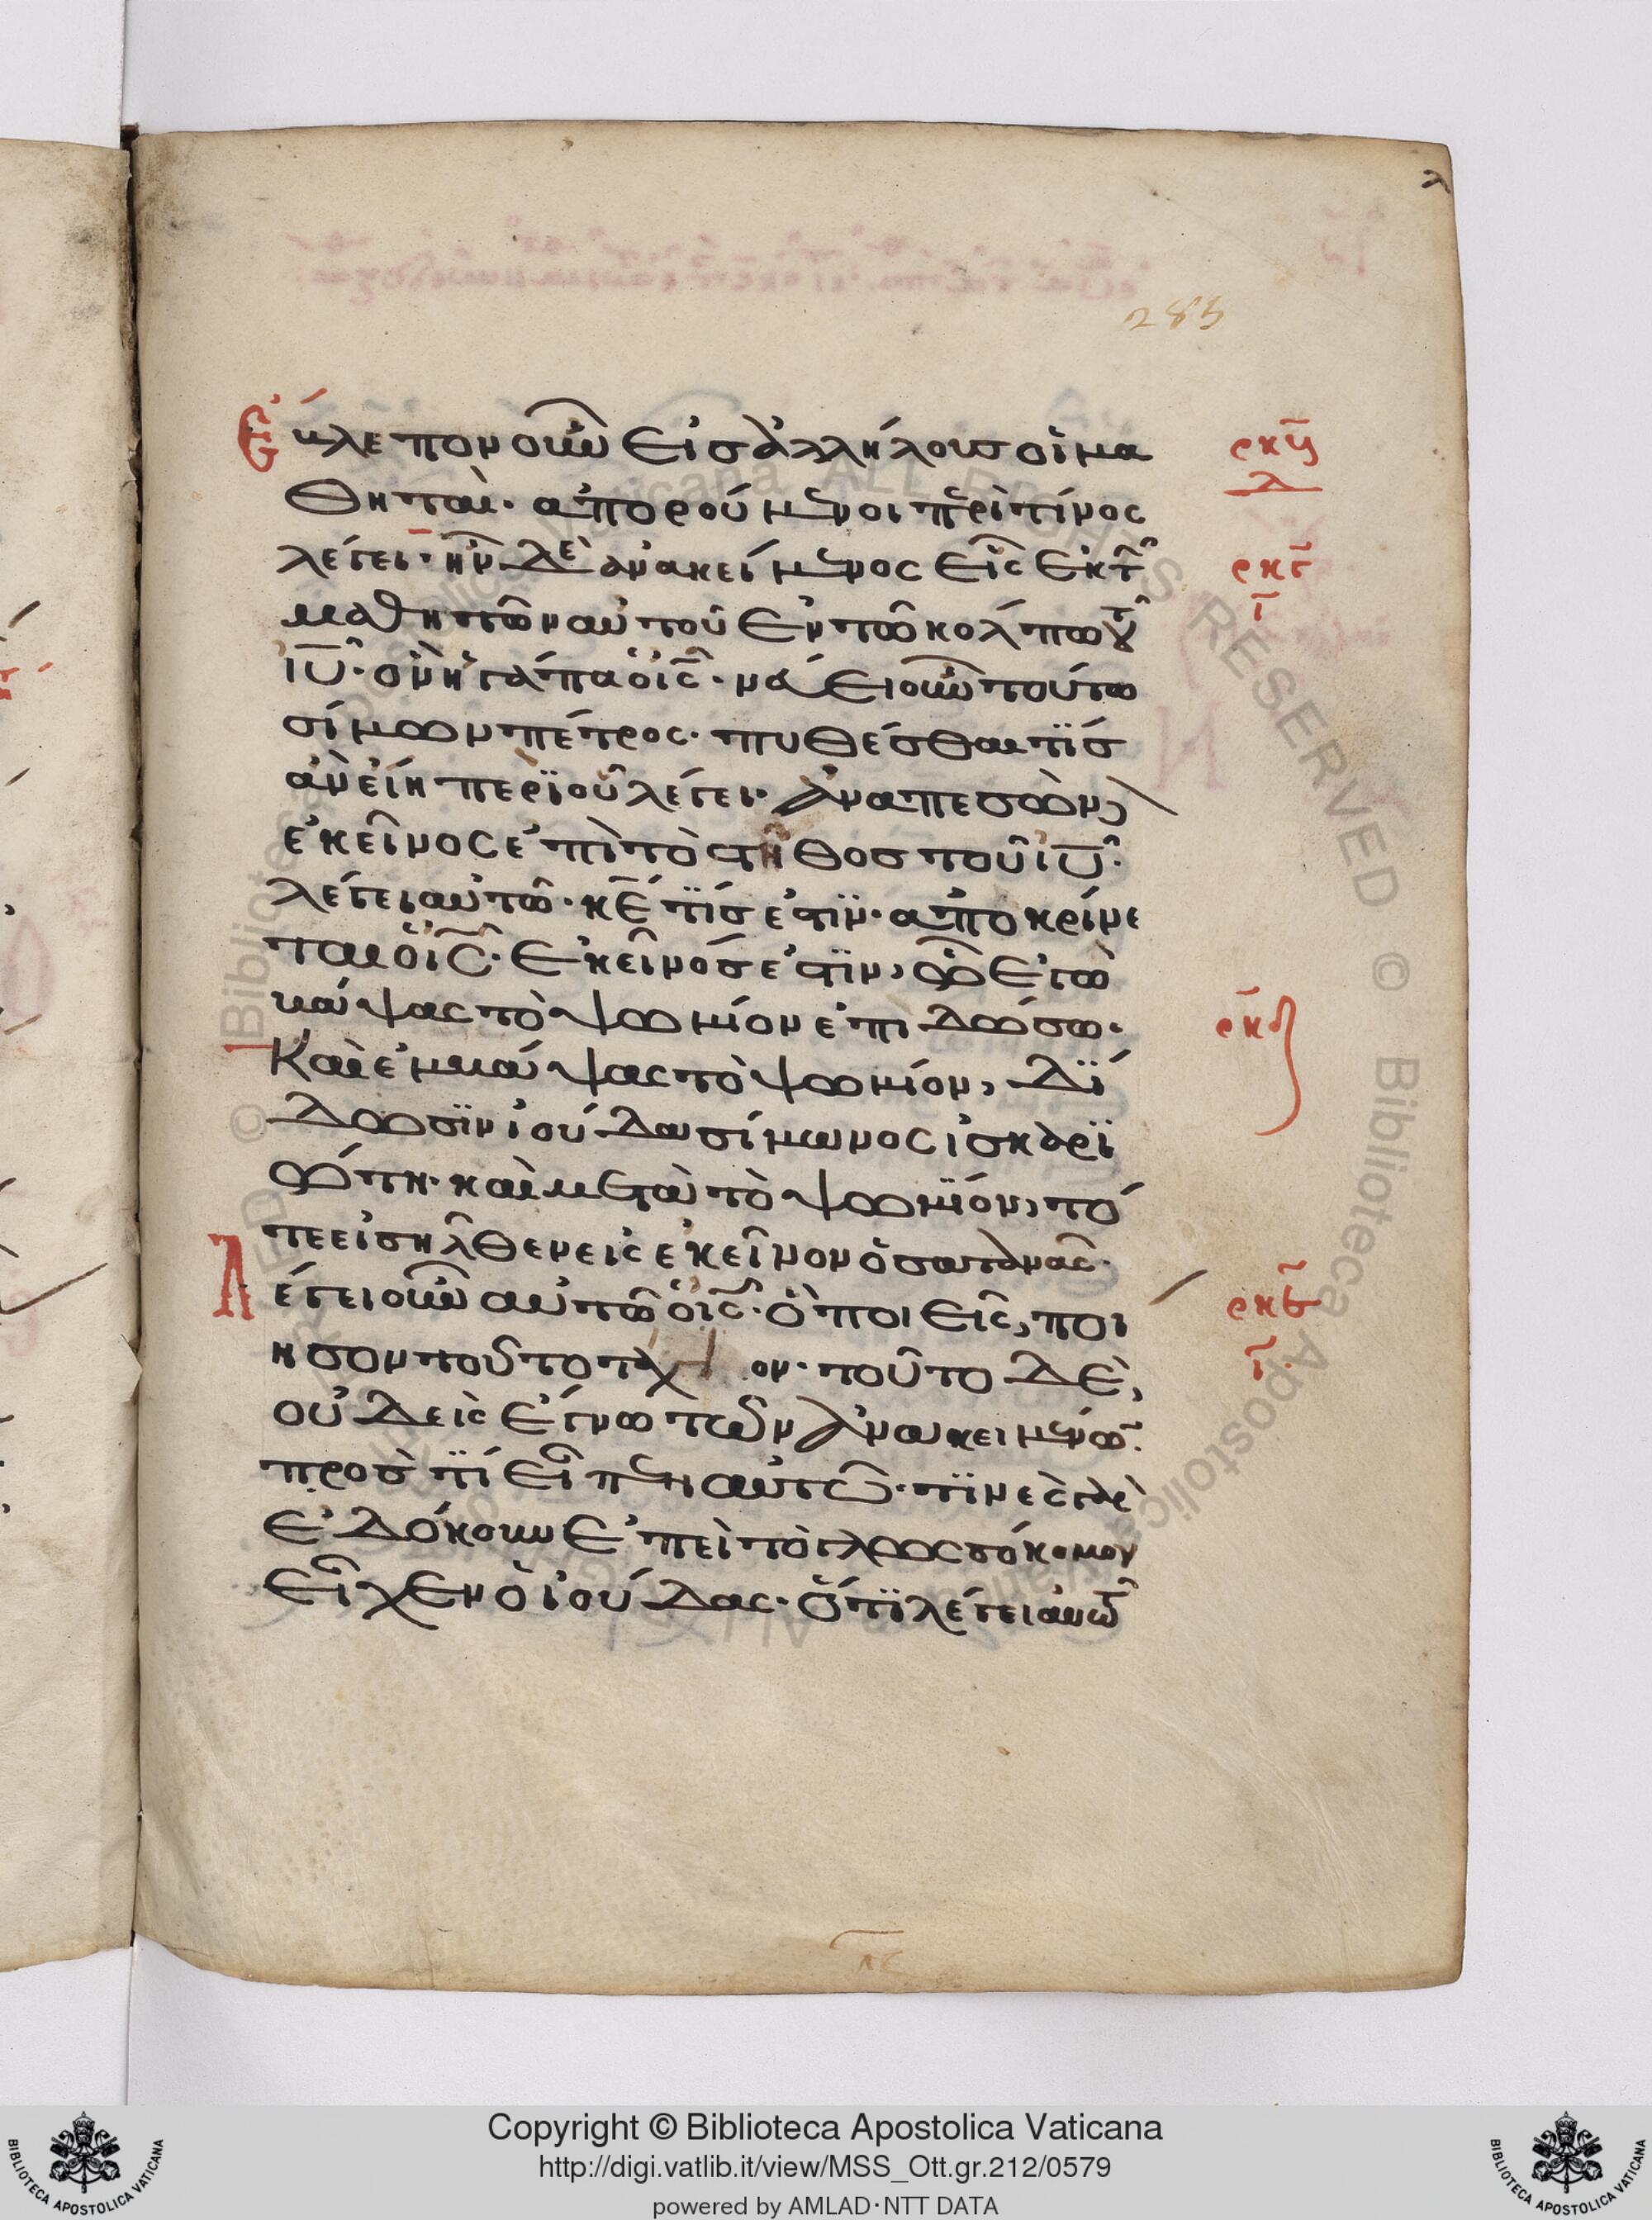 285
Ἔ βλεπον οὖν εἰς ἀλλήλους οἱ μα
θηταὶ· ἀπορούμενοι περὶ τίνος
λέγει· ἦν δὲ ἀνακείμενος εἷς ἐκ τῶ
μαθητῶν αὐτοῦ ἐν τῶ κόλπω τοῦ
ἰῦ· ὃν ἠγάπα ὁ ἰς· νεύει οὖν τούτω
σίμων πέτρος· πυθέσθαι τίς
ἂν εἴη περὶ οὗ λέγει· ἀναπεσὼν
ἐκεῖνος ἐπὶ τὸ στῆθος τοῦ ἰῦ·
λέγει αὐτῶ· κε τίς ἐστϊν· ἀποκρίνε
ται ὁ ἰς· ἐκεῖνός ἐστϊν, ὧ ἐγὼ
βάψας τὸ ψωμίον ἐπιδώσω·
Καὶ ἐμβάψας τὸ ψωμίον, δϊ
δωσϊν ἰούδα σίμωνος ἰσκαρϊ
ώτη· καὶ μετὰ τὸ ψωμϊόν, τό
τε εἰσῆλθεν εἰς ἐκεῖνον ὁ σατανᾶς·
Λ έγει οὖν αὐτῶ ὁ ἰς· ὃ ποιεῖς, ποι
ησον τοῦτο ταχ ον· τοῦτο δὲ,
οὐδεὶς ἔγνω τῶν ἀνακειμένω·
πρὸς τϊ εἶπεν αὐτῶ· τϊνὲς γὰρ
ἐδόκουν ἐπεὶ τὸ γλωσσόκομον
εἶχεν ὁ ἰούδας· ὅτϊ λέγει αὐτῶ
ρκγ
ρκδ
Copyright © Biblioteca Apostolica Vaticana
http://digi.vatlib.it/view/MSS_Ott.gr.212/0579
powered by AMLAD·NTT DATA
BIBLIOTECA APOSTOLICA VATICANA
BIBLIOTECA APOSTOLICA VATICANA